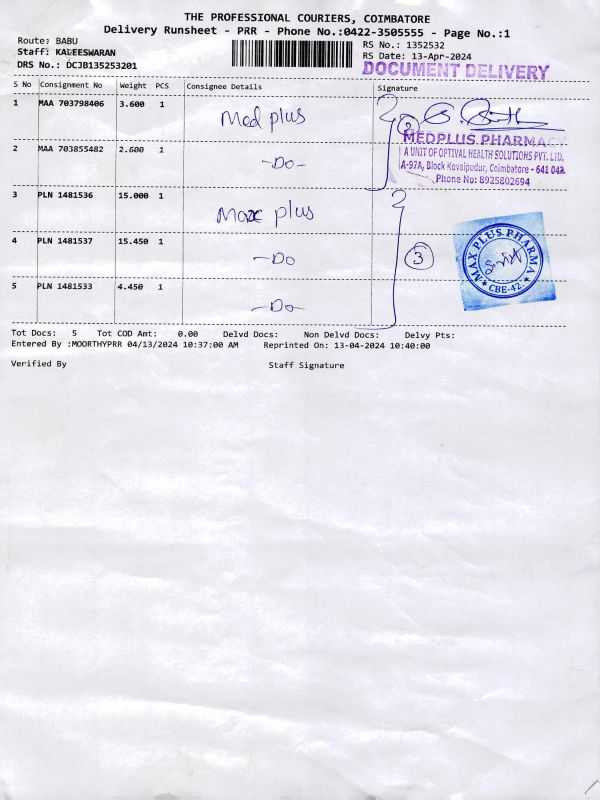 THE PROFESSIONAL COURIERS, COIMBATORE
Delivery Runsheet - PRR - Phone No.:0422-3505555 - Page No.:1
Route: BABU
RS No.: 1352532
Staff: KALEESWARAN
RS Date: 13-Apr-2024
DRS No.: DCJB135253201
DOCUMENT DELIVERY
S No Consignment No Weight PCS Consignee Details Signature
1 MAA 703798406 3.600 1 Med plus
2
MEDPLUS PHARMAC
A UNIT OF OPTIVAL HEALTH SOLUTIONS PVT. LTD.
A-97A, Block Kovaipudur, Coimbatore - 641 042.
Phone No: 8925802694
2 MAA 703855482 2.600 1 -Do-
3 PLN 1481536 15.000 1 Max plus
4 PLN 1481537 15.450 1 -Do
3
MAX PLUS PHARMA
★ CBE-42. ★
5 PLN 1481533 4.450 1 -Do-
Tot Docs: 5 Tot COD Amt: 0.00 Delvd Docs: Non Delvd Docs: Delvy Pts:
Entered By :MOORTHYPRR 04/13/2024 10:37:00 AM Reprinted On: 13-04-2024 10:40:00
Verified By Staff Signature